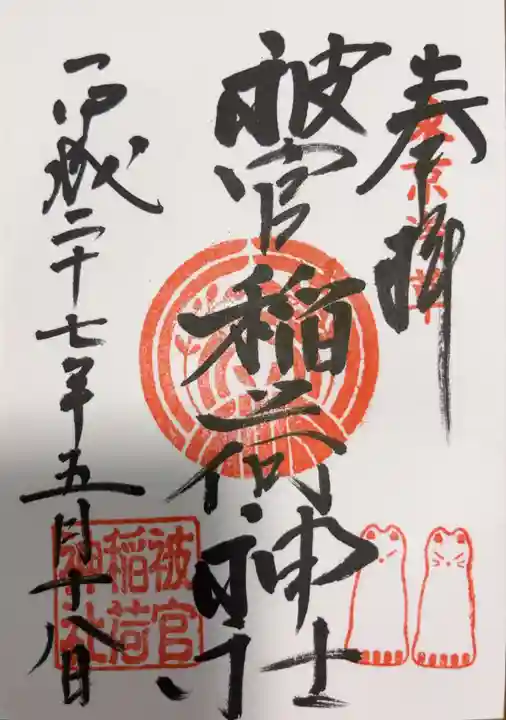 奉拝
東京浅草
被官稲荷神社
平成二十七年五月十八日
被官
稲荷
神社